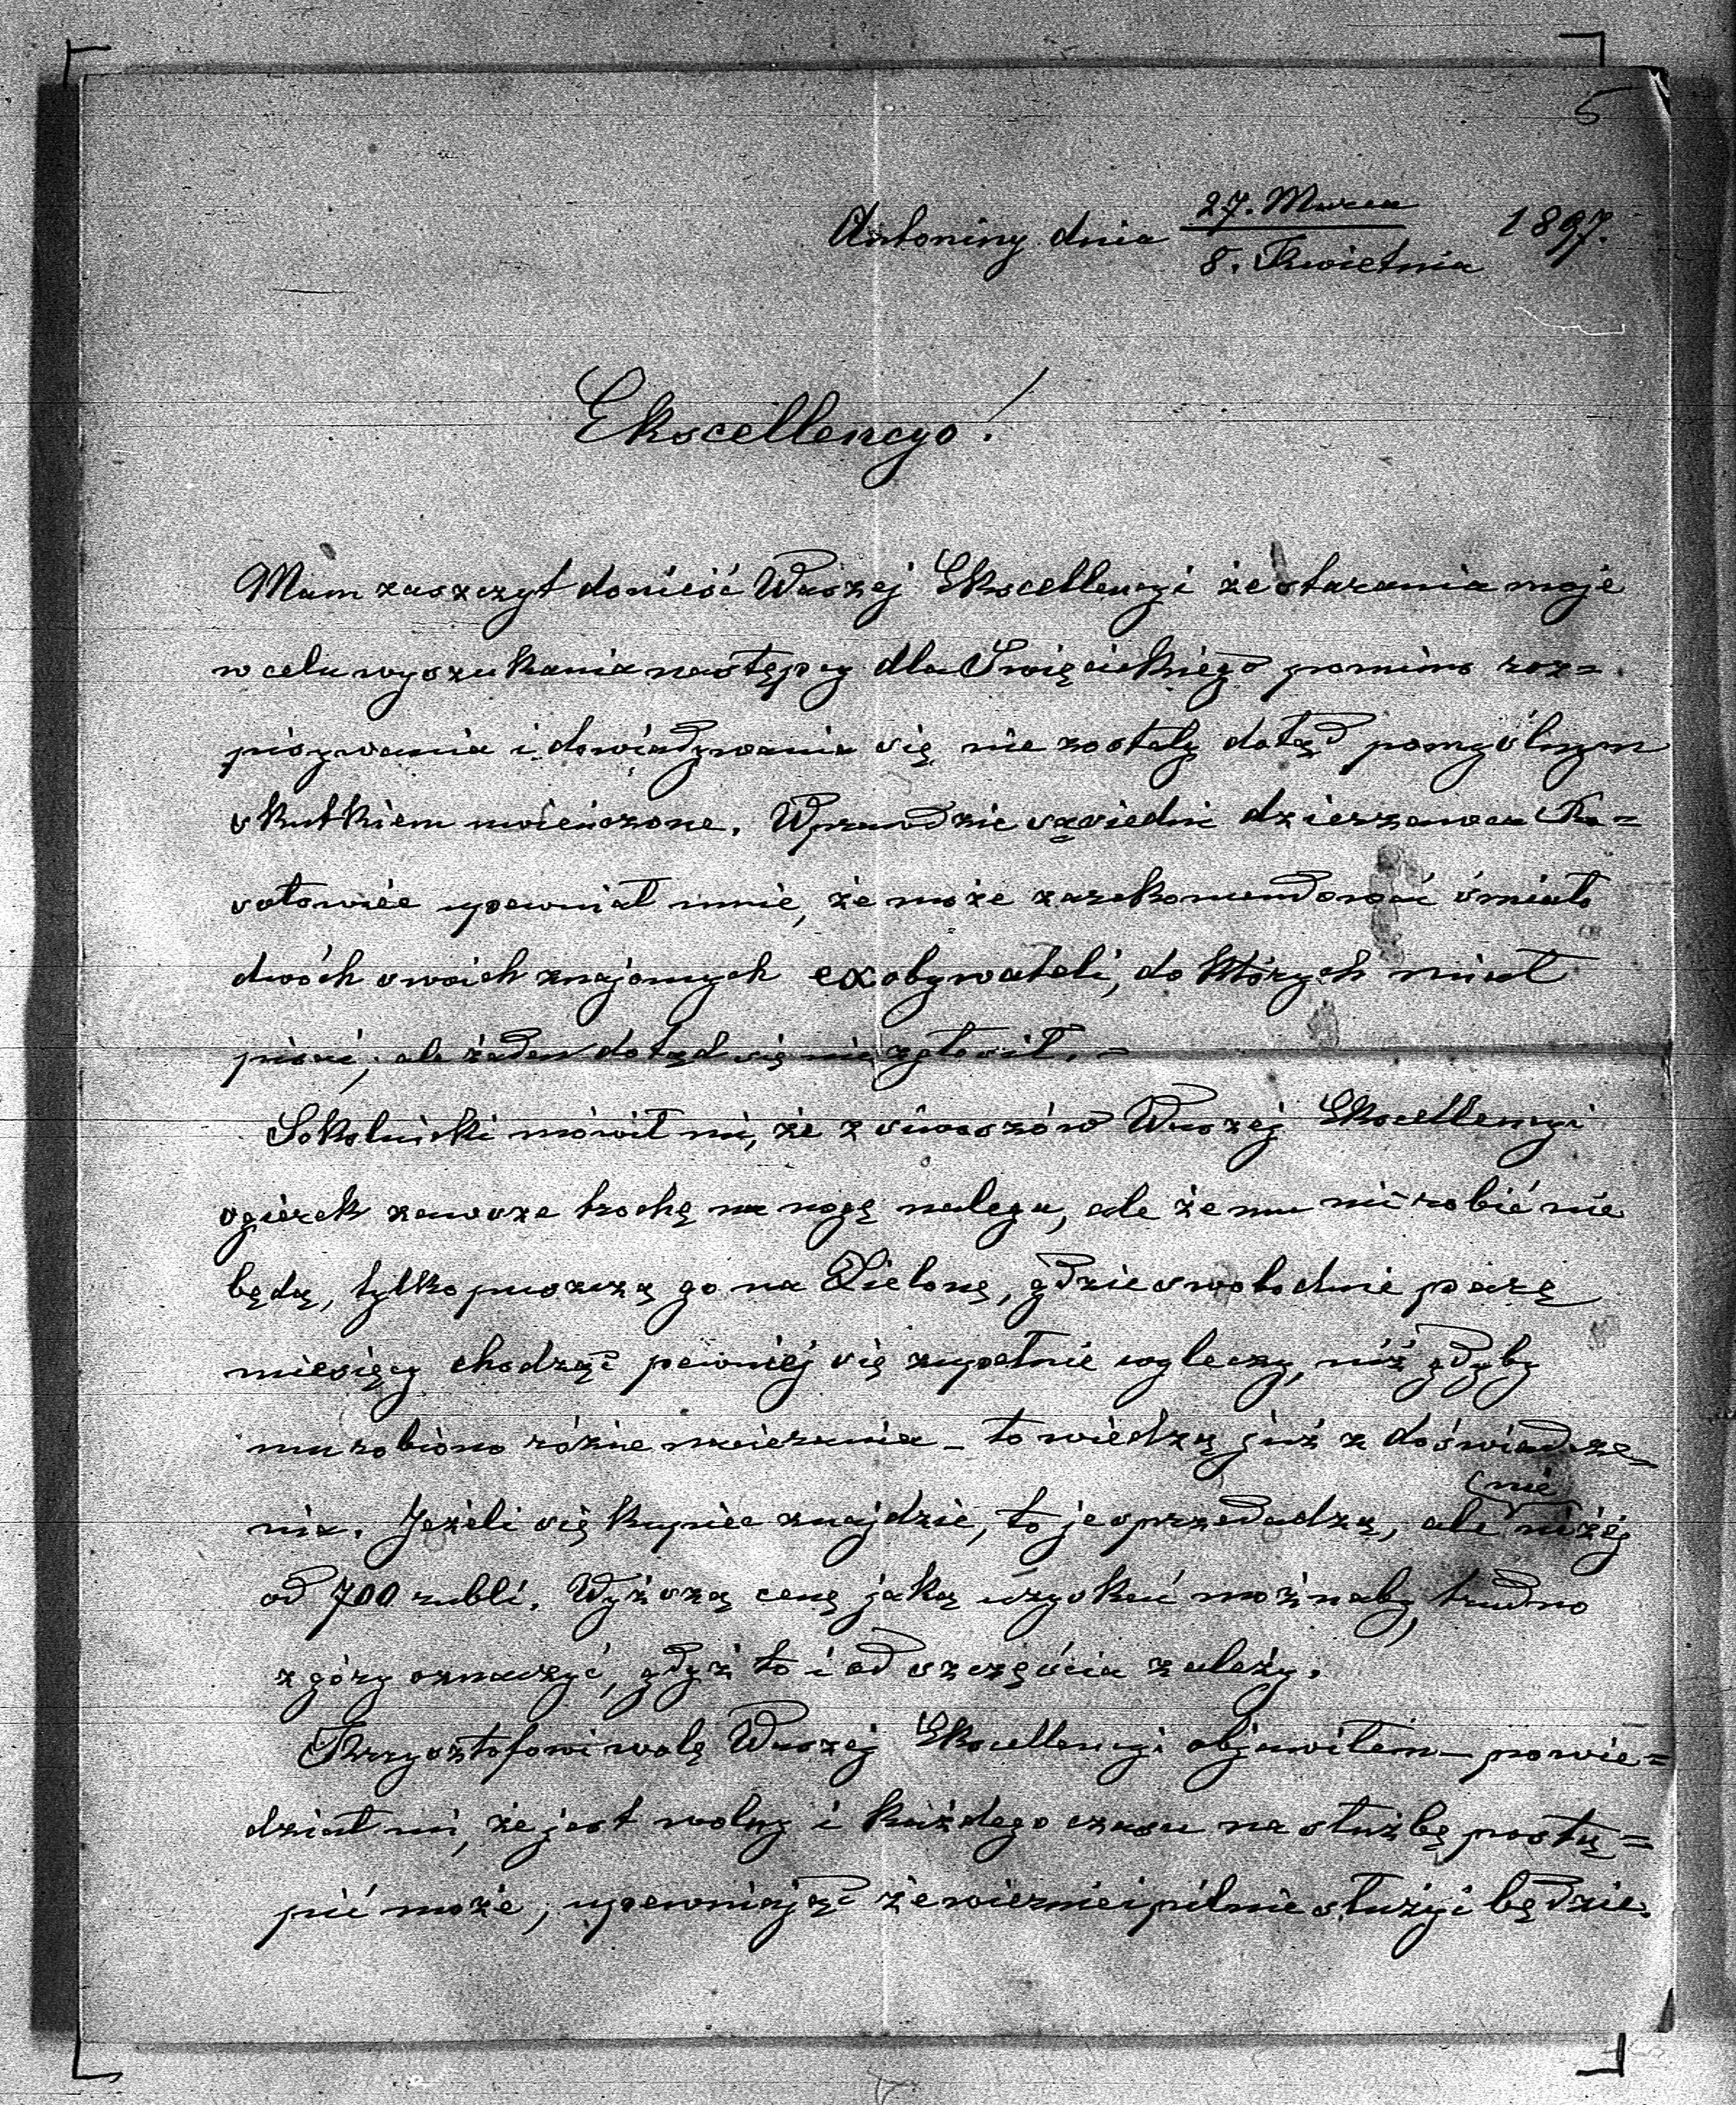 5
Antoniny dnia 27. Marca 1897.
8. Kwietnia
Ekscellencyo!
Mam zaszczyt donieść Waszej Ekscellencyi że starania moje
w celu wyszukania następcy dla Święcickiego pomimo roz=
pisywania i dowiadywania się nie zostały dotąd pomyślnym
skutkiem uwieńczone. Wprawdzie sąsiedni dzierzawca
upewniał mnie, że może zarekomendować śmiało
dwóch swoich znajomych exobywateli, do których miał
pisać, ale żaden dotąd się nie zgłosił. –
Sokolnicki mówił mi, że z siwoszów Waszej Ekscellencyi
ogierek zawsze trochę na nogę nalega, ale że mu nic robić nie
będą, tylko puszczą go na Zieloną, gdzie swobodnie parę
miesięcy chodząc pewniej się zupełnie wyleczy, niż gdyby
mu robiono różne nacierania – to wiedzą już z doświadcze=
nia. Jeżeli się kupiec znajdzie, to je sprzedadzą, ale nie niżej
od 700 rubli. Wyższą cenę jaką uzyskać możnaby, trudno
z góry oznaczyć, gdyż to i od szczęścia zależy.
Krzysztofowi wolę Waszej Ekscellencyi objawiłem – powie=
dział mi, że jest wolny i każdego czasu na służbę postą=
pić może, upewniając że wiernie i pilnie służyć będzie.